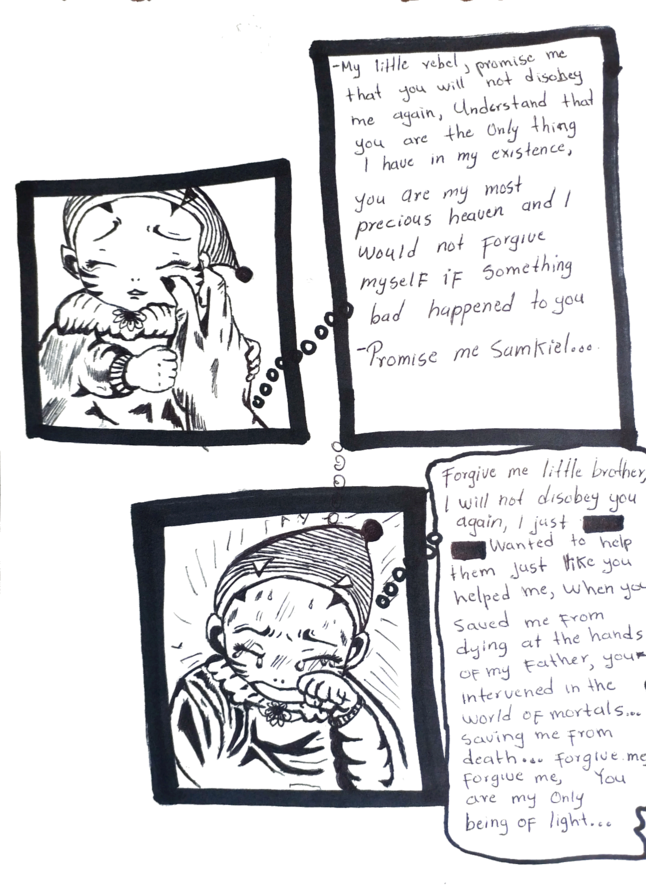 -My little rebel, promise me
that you will not disobey
me again, Understand that
you are the Only thing
I have in my existence,
you are my most
precious heaven and I
Would not Forgive
myself if Something
bad happened to you
-Promise me Samkiel...
Forgive me little brother,
I will not disobey you
again, I just
Wanted to help
them just like you
helped me, When you
Saved me From
dying at the hands
of my Father, you
intervened in the
world of mortals...
saving me From
death... Forgive me
Forgive me, You
are my Only
being of light...